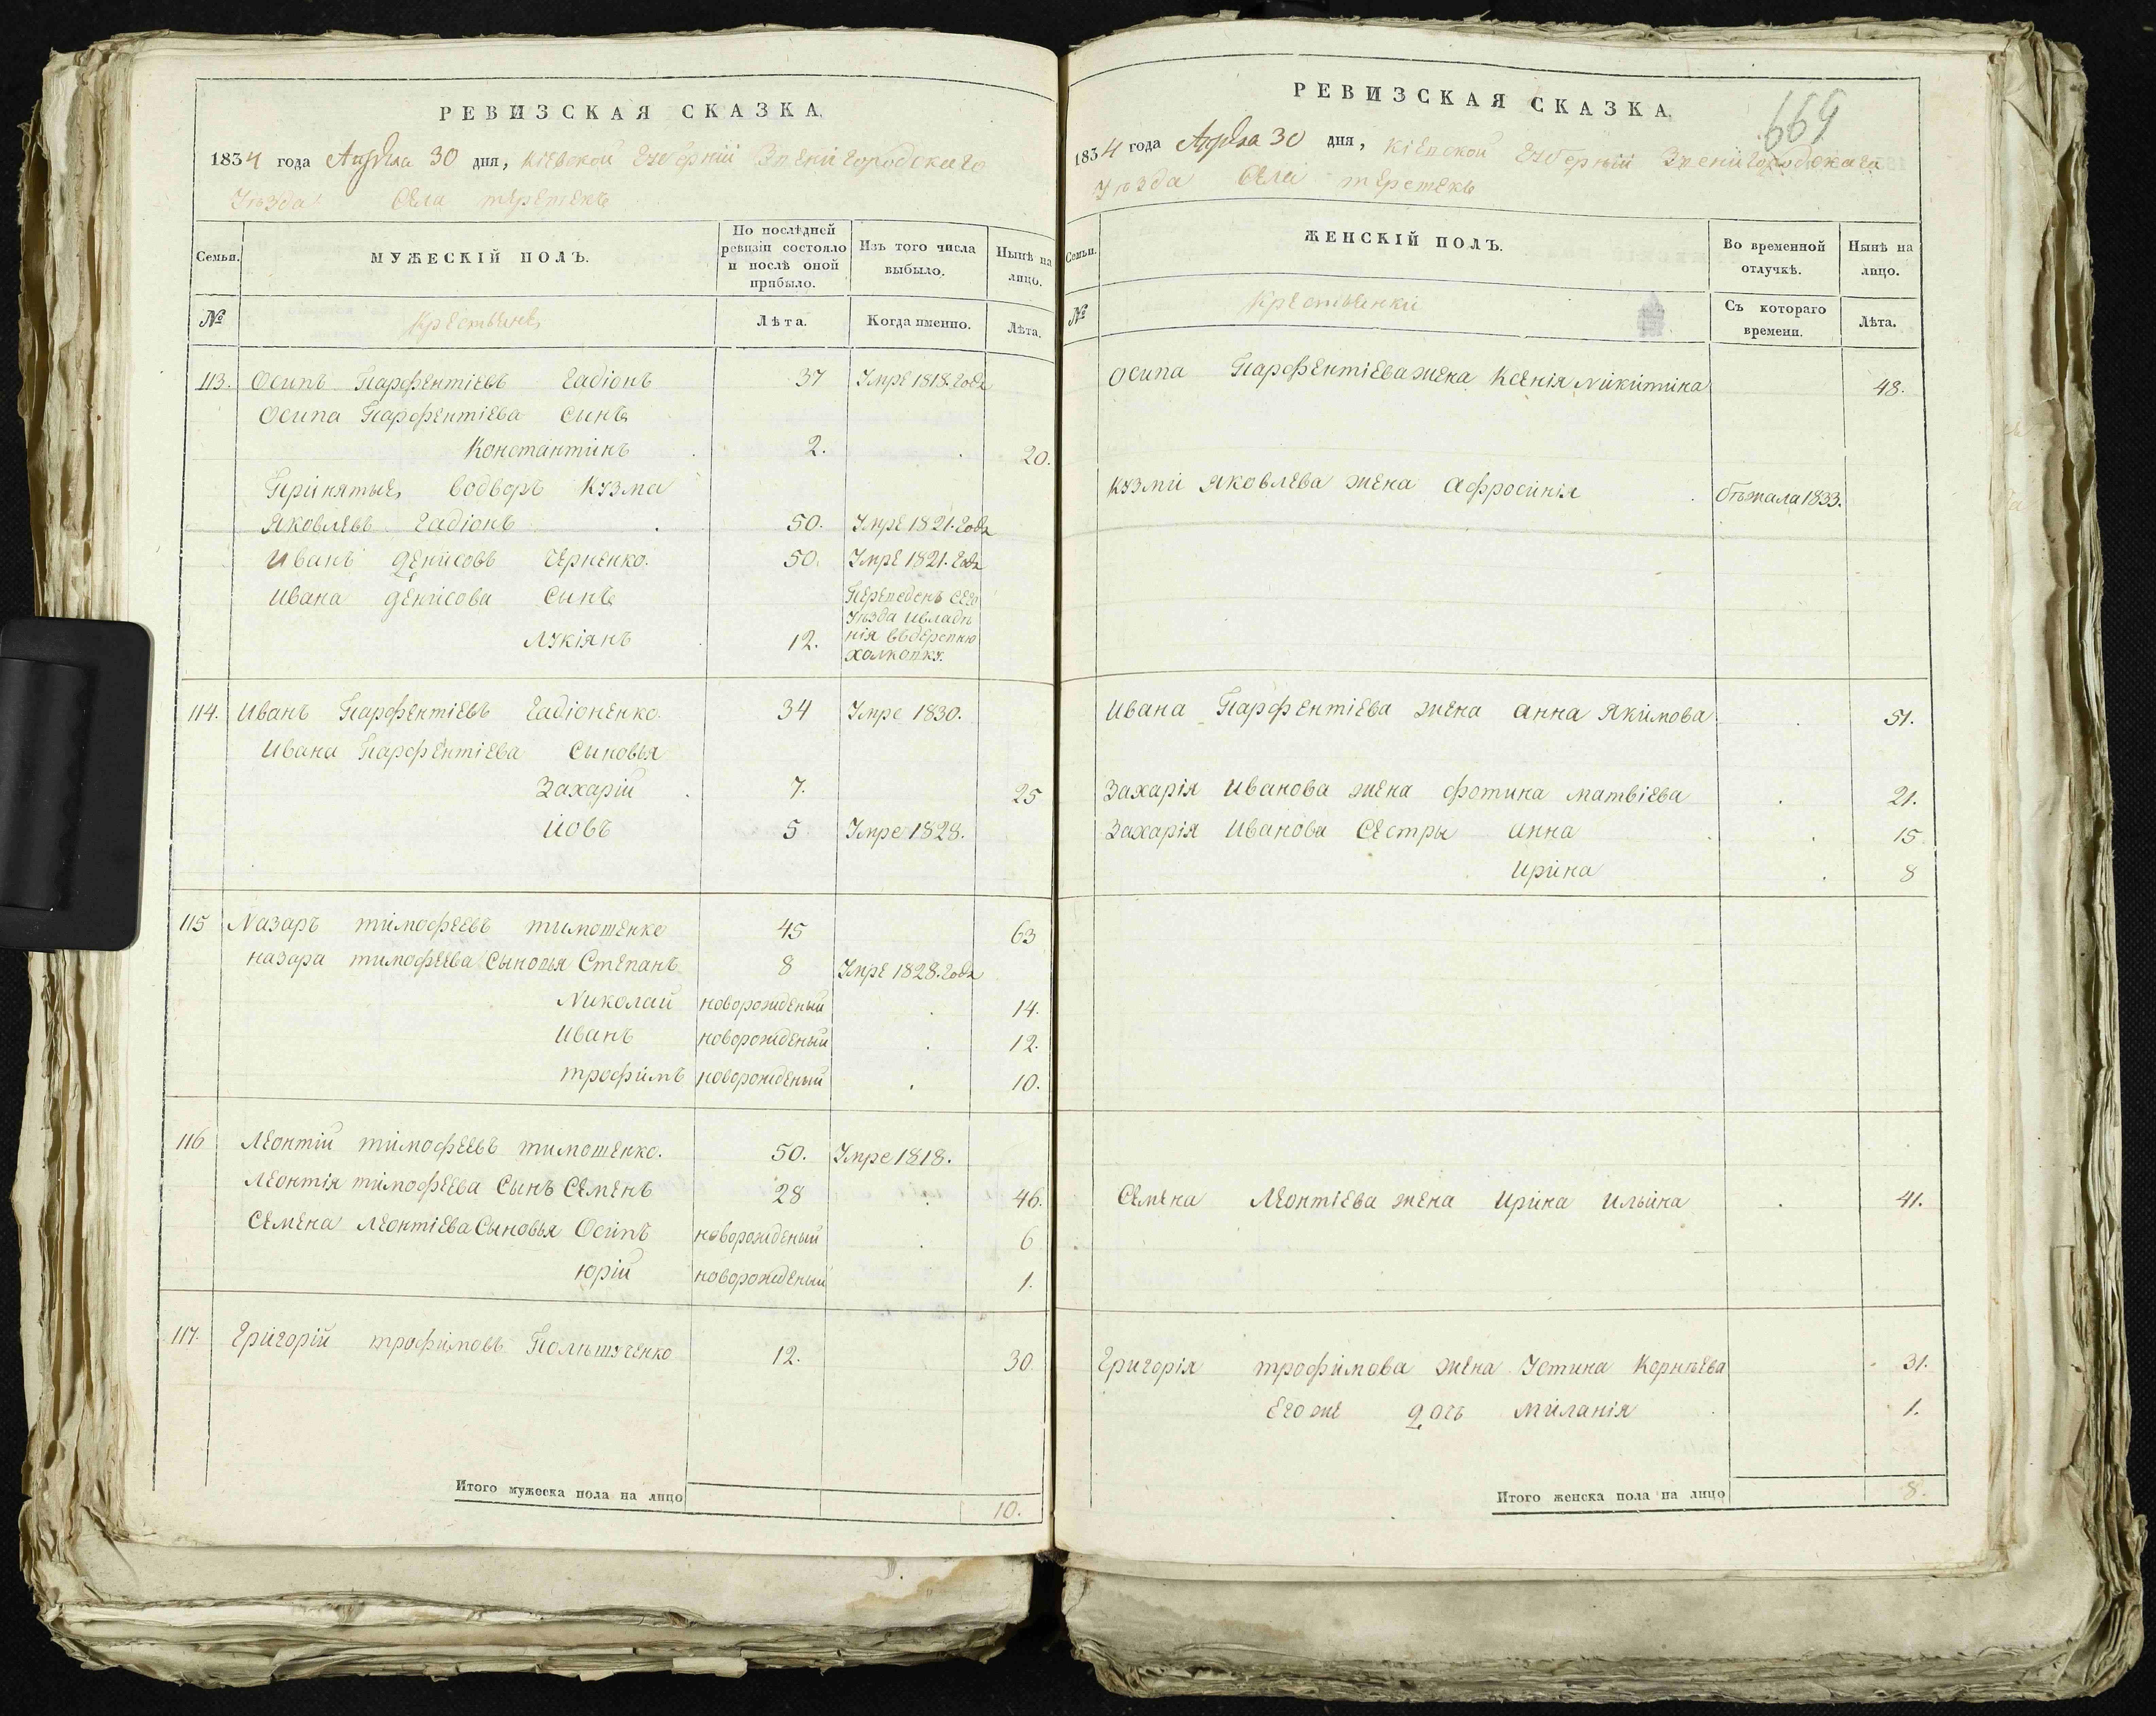 РЕВИЗСКАЯ СКАЗКА.
1834 года Апреля 30 дня, Кіевской Губерніи Звенигородскаго
Уѣзда Села
Семьи.
МУЖЕСКІЙ ПОЛЪ.
По послѣдней ревизіи состояло и послѣ оной прибыло.
Изъ того числа выбыло.
Нынѣ на лицо.
№
Крестьяне
Лѣта.
Когда именно.
Лѣта.
113. Осипъ Парфентіевъ Гадіонъ 37 Умре 1818. года
Осипа Парфентіева Синъ
Константинъ 2. 20.
Принятые Водворъ Кузма
Яковлевъ Гадіонъ 50. Умре 1821. года
Иванъ Денисовъ Черненко. 50. Умре 1821. года
Ивана Денисова Синъ Переведенъ сего
Уѣзда Ивладѣ
Лукіянъ 12. нія въдеревню
114. Иванъ Парфентіевъ Гадіоненко. 34 Умре 1830.
Ивана Парфентіева Синовья
Захарій 7. 25
Иовъ 5 Умре 1828.
115 Назаръ тимофеевъ тимошенко 45 63
назара тимофеева Сыновья Степанъ 8 Умре 1828. года
Николай новорожденый 14.
Иванъ новорожденый 12.
трофимъ новорожденый 10.
116 Леонтій тимофеевъ тимошенко. 50. Умре 1818.
Леонтія тимофеева Сынъ Семенъ 28 46.
Семена Леонтіева Сыновья Осипъ новорожденый 6
Юрій новорожденый 1.
117. Григорій трофимовъ 12. 30.
Итого мужеска пола на лицо 10.
РЕВИЗСКАЯ СКАЗКА.
669
1834 года Апреля 30 дня, Кіевской Губерніи Звенигородскаго
Уѣзда Села
Семьи.
ЖЕНСКІЙ ПОЛЪ.
Во временной отлучкѣ.
Нынѣ на лицо.
№
Крестьянки
Съ котораго времени.
Лѣта.
Осипа Парфентіева жена Ксенія Никитина 48.
Кузми Яковлева жена Афросинія бѣжала 1833.
Ивана Парфентіева жена Анна Якимова 51.
Захарія Иванова жена Фотина Матвіева 21.
Захарія Иванова Сестры Анна 15
Ирина 8
Семена Леонтіева жена Ирина Ильина 41.
Григорія трофимова жена Устина Корнѣева 31.
Его же дочъ Миланія 1.
Итого женска пола на лицо 8.